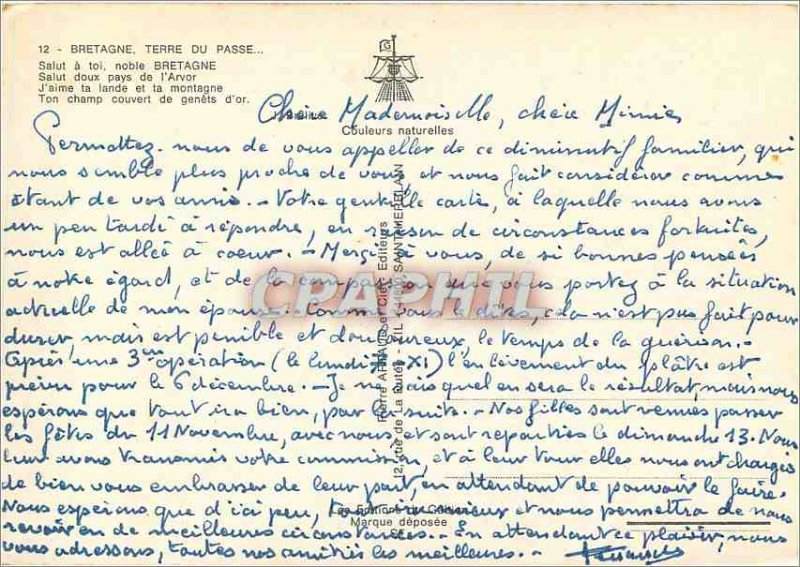 12 - BRETAGNE, TERRE DU PASSE...
Salut à toi, noble BRETAGNE
Salut doux pays de l'Arvor
J'aime ta lande et ta montagne
Ton champ couvert de genêts d'or.
Couleurs naturelles
Chère Mademoiselle, chère Mimie,
Permettez-nous de vous appeller de ce diminutif familier, qui
nous semble plus proche de vous, et nous fait considérer comme
étant de vos amis. - Votre gentille carte, à laquelle nous avons
un peu tardé à répondre, en raison de circonstances fortuites,
nous est allée à coeur. - Merci à vous, de si bonnes pensées
à notre égard, et de la compassion que vous portez à la situation
actuelle de mon épouse. - Comme vous le dites, cela n'est pas fait pour
durer mais est penible et douloureux, le temps de la guérison. -
Après une 3ème opération (le lundi XI) l'enlèvement du plâtre est
prévu pour le 6 décembre. - Je ne sais quel en sera le résultat, mais nous
espérons que tout ira bien, par la suite. - Nos filles sont venues passer
les fêtes du 11 Novembre, avec nous, et sont reparties le dimanche 13. Nous
leur avons transmis votre commission, et à leur tour elles nous ont chargés
de bien vous embrasser de leur part, en attendant de pouvoir le faire.
Nous espérons que d'ici peu, tout ira mieux et nous permettra de nous
revoir en de meilleures circonstances. - En attendant ce plaisir, nous
vous adressons, toutes nos amitiés les meilleures. -
Pierre ARTAUD et Cie, Editeurs
12, rue de La Routes - ZIL 44800 SAINT-HERBLAIN
Les Editions du Gabier
Marque déposée
CPAPHIL